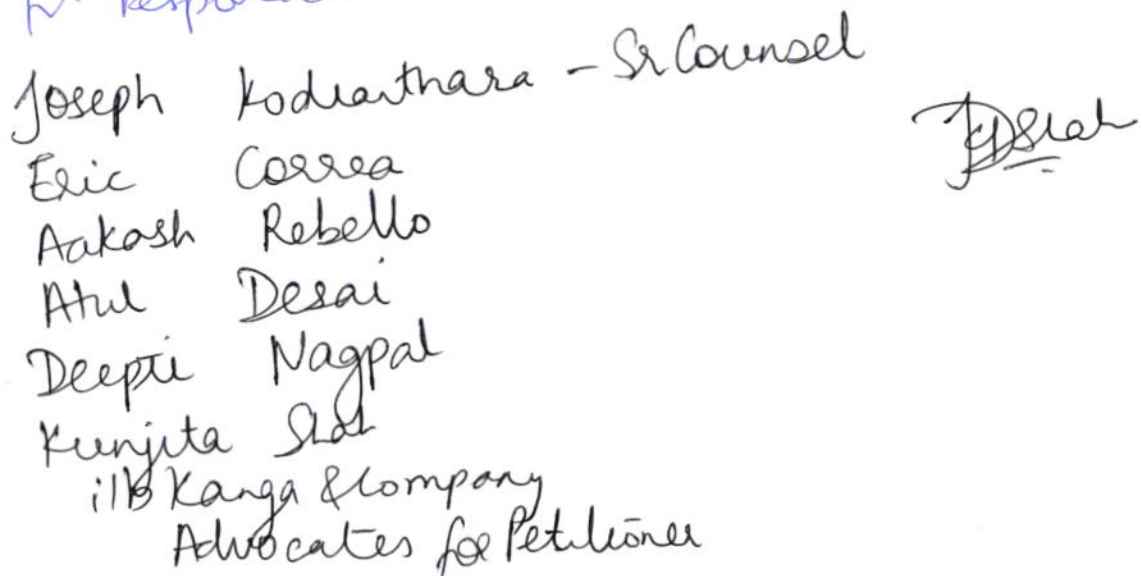 Joseph Kodianthara - Sr Counsel
Eric Correa
Aakash Rebello
Atul Desai
Deepti Nagpal
Kunjita Shah
i/b Kanga & Company
Advocates for Petitioner